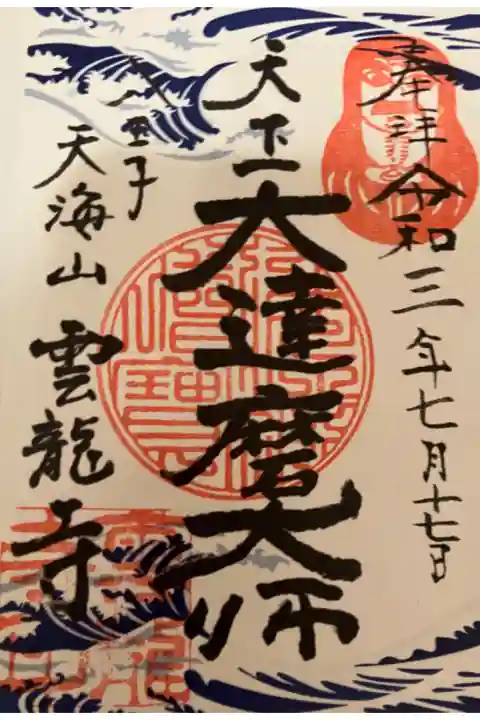 奉拝令和三年七月十七日
天下一大達磨大師
八王子
天海山雲龍寺